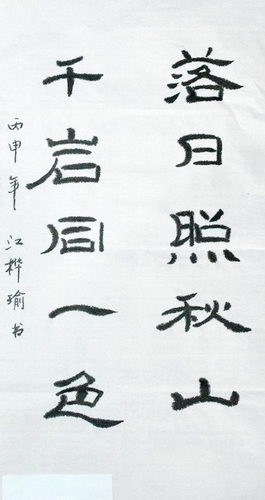 落日照秋山
千岩同一色
丙申年 江桦瑜书